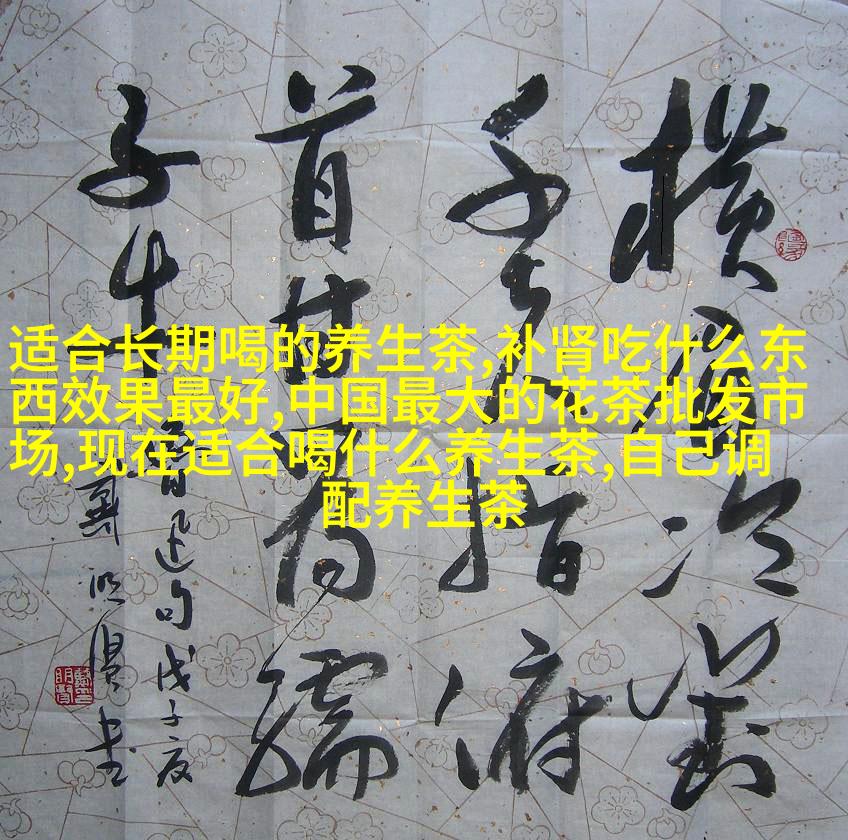 适合长期喝的养生茶,补肾吃什么东
西效果最好,中国最大的花茶批发市
场,现在适合喝什么养生茶,自己调
配养生茶
横眉冷對
千夫指俯
首甘为孺
子牛
鲁迅句戊子夏
明书